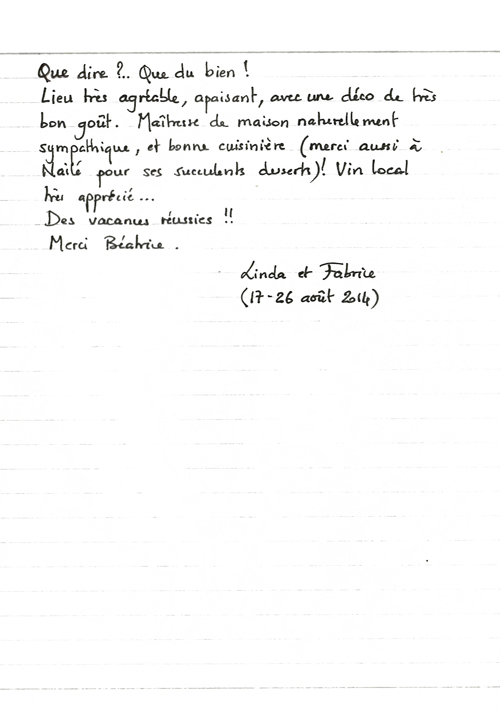 Que dire ?.. Que du bien !
Lieu très agréable, apaisant, avec une déco de très
bon goût. Maîtresse de maison naturellement
sympathique, et bonne cuisinière (merci aussi à
Naïlé pour ses succulents desserts)! Vin local
très apprécié ...
Des vacances réussies !!
Merci Béatrice .
Linda et Fabrice
(17-26 août 2014)